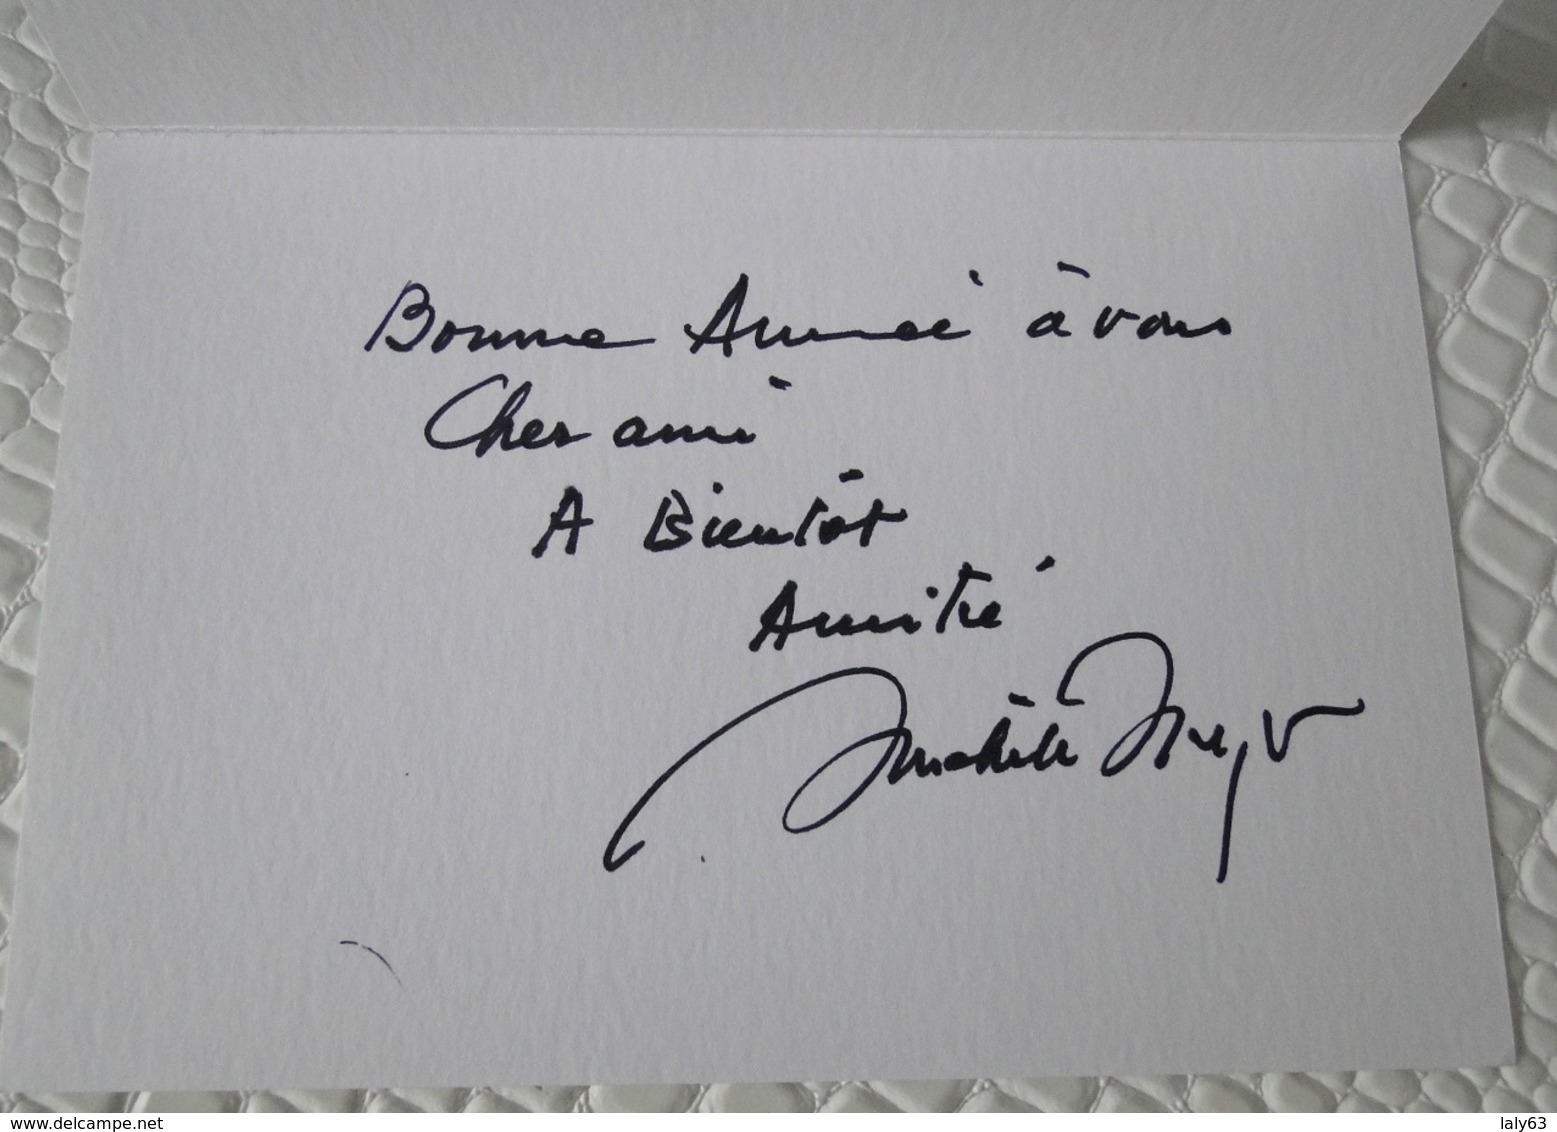 Bonne Année à vous
Cher ami
A Bientôt
Amitié
Michèle
www.delcampe.net
laly63